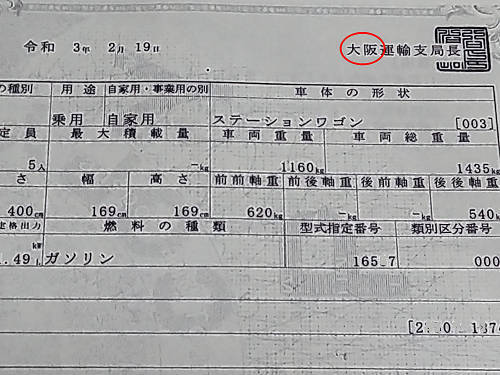 令和 3年 2月 19日 大阪運輸支局長
の種別 用途 自家用・事業用の別 車体の形状
乗用 自家用 ステーションワゴン [003]
定員 最大積載量 車両重量 車両総重量
5人 -kg 1160kg 1435kg
さ 幅 高さ 前前軸重 前後軸重 後前軸重 後後軸重
400cm 169cm 169cm 620kg -kg -kg 540kg
定格出力 燃料の種類 型式指定番号 類別区分番号
kW
.49L ガソリン 000